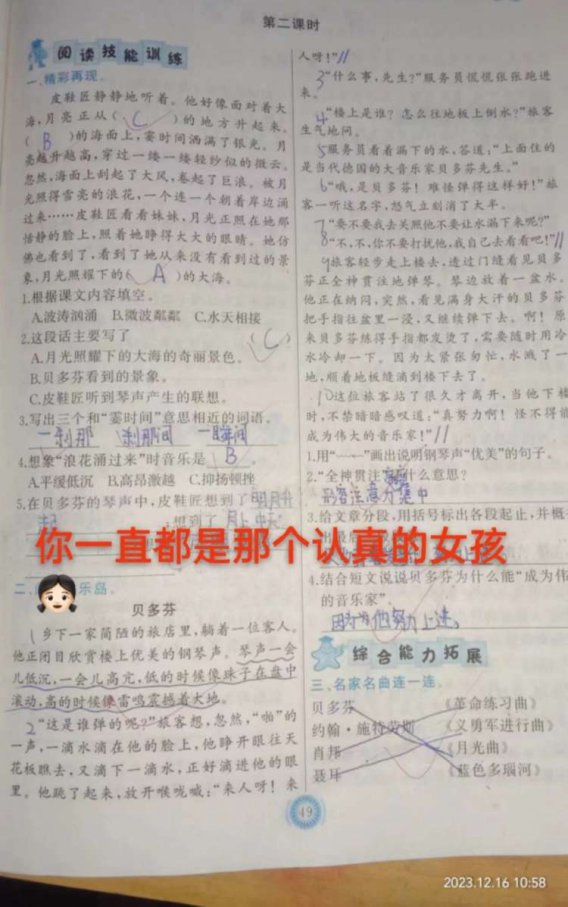 第二课时
阅读技能训练
一、精彩再现。
皮鞋匠静静地听着。他好像面对着大
海,月亮正从( C )的地方升起来。
( B )的海面上,霎时间洒满了银光。月
亮越升越高,穿过一缕一缕轻纱似的微云。
忽然,海面上刮起了大风,卷起了巨浪。被月
光照得雪亮的浪花,一个连一个朝着岸边涌
过来……皮鞋匠看看妹妹,月光正照在她那
恬静的脸上,照着她睁得大大的眼睛。她仿
佛也看到了,看到了她从来没有看到过的景
象,月光照耀下的( A )的大海。
1.根据课文内容填空。
A.波涛汹涌 B.微波粼粼 C.水天相接
2.这段话主要写了 (C)
A.月光照耀下的大海的奇丽景色。
B.贝多芬看到的景象。
C.皮鞋匠听到琴声产生的联想。
3.写出三个和“霎时间”意思相近的词语。
一刹那 刹那间 一瞬间
4.想象“浪花涌过来”时音乐是 B 。
A.平缓低沉 B.高昂激越 C.抑扬顿挫
5.在贝多芬的琴声中,皮鞋匠想到了明月升
起 ,想到了月上中天
你一直都是那个认真的女孩
二、 乐岛。
贝多芬
1 乡下一家简陋的旅店里,躺着一位客人。
他正闭目欣赏楼上优美的钢琴声。琴声一会
儿低沉,一会儿高亢,低的时候像珠子在盘中
滚动,高的时候像雷鸣震撼着大地。
2 “这是谁弹的呢?”旅客想,忽然,“啪”的
一声,一滴水滴在他的脸上,他睁开眼往天
花板瞧去,又滴下一滴水,正好滴进他的眼
里。他跳了起来,放开喉咙喊:“来人呀!来
人呀!”//
3 “什么事,先生?”服务员慌慌张张跑进
来。
4 “楼上是谁?怎么往地板上倒水?”旅客
生气地问。
5 服务员看着漏下的水,答道:“上面住的
是当代德国的大音乐家贝多芬先生。”
6 “哦,是贝多芬!难怪弹得这样好!”旅
客一听这名字,怒气立刻消了大半。
7 “要不要我去关照他不要让水漏下来呢?”
8 “不,不,你不要打扰他,我自己去看看吧!”//
9 旅客轻步走上楼去,透过门缝看见贝多
芬正全神贯注地弹琴。琴边放着一盆水。
他正在纳闷,突然,看见满身大汗的贝多芬
把手指往盆里一浸,又继续弹下去。啊!原
来贝多芬练得手指都发烫了,需要随时用冷
水冷却一下。因为太紧张匆忙,水溅了一
地,顺着地板缝滴到楼下去了。
10 这位旅客站了很久才离开,当他下楼
时,不禁暗暗感叹道:“真努力啊!怪不得能
成为伟大的音乐家!”//
1.用“﹏﹏”画出说明钢琴声“优美”的句子。
2.“全神贯注”是什么意思?
形容注意力集中
3.给文章分段,用括号标出各段起止,并概
4.结合短文说说贝多芬为什么能“成为伟
的音乐家”。
因为他努力上进。
综合能力拓展
三、名家名曲连一连。
贝多芬 《革命练习曲》
约翰·施特劳斯 《义勇军进行曲》
肖邦 《月光曲》
聂耳 《蓝色多瑙河》
49
2023.12.16 10:58